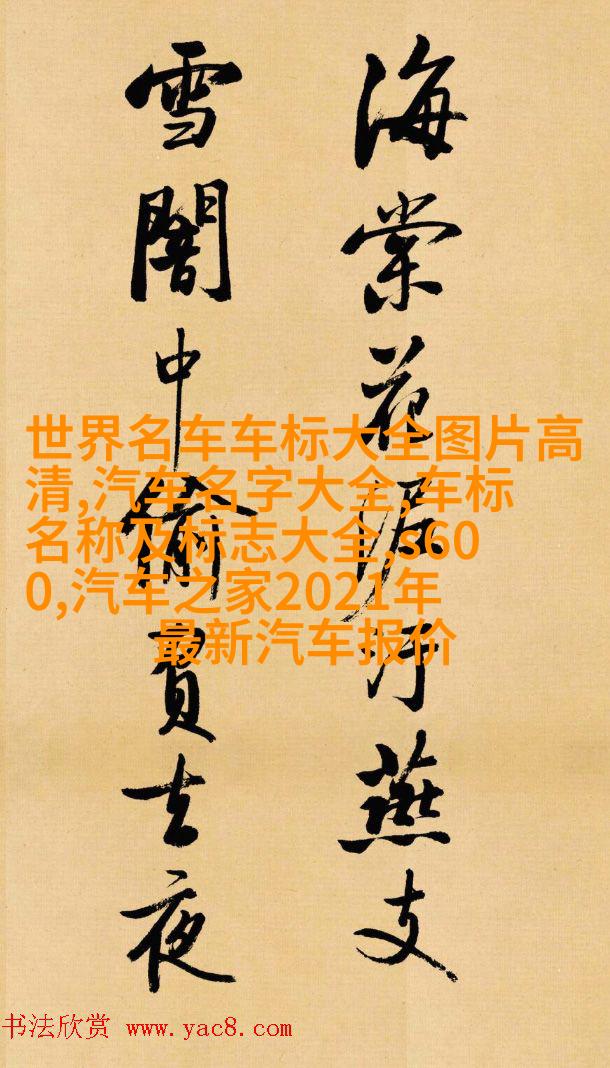 海棠花泥汙燕支
雪闇中偷負去夜
世界名车车标大全图片高
清,汽车名字大全,车标
名称及标志大全,s60
0,汽车之家2021年
最新汽车报价
书法欣赏 www.yac8.com